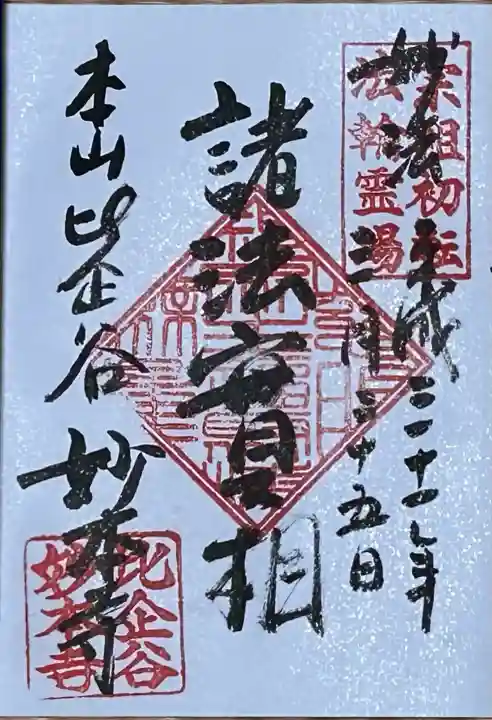 宗祖初転
法輪霊場
妙法
平成三十一年
三月二十五日
諸法實相
本山比企谷
妙本寺
比企谷
妙本寺